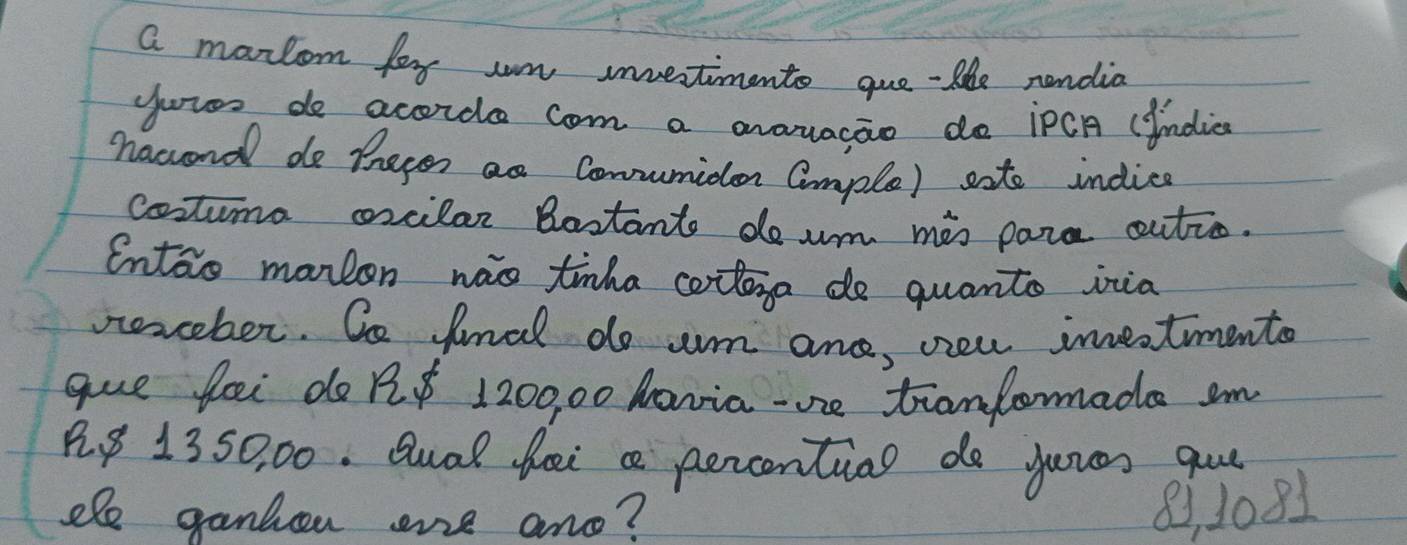 a marlom fez um investimento que-lhe rendia
juros de acordo com a avariação do iPCA (Índice
nacional de Preços ao Consumidor Amplo) este indice
costuma oscilar Bastante de um mês para outro.
Então marlon não tinha certeza de quanto iria
receber. Ao final de um ano, seu investimento
que foi de R$ 1200,00 havia-se tranformado em
R$ 1350,00. Qual foi o percentual de juros que
ele ganhou esse ano?
81,1081